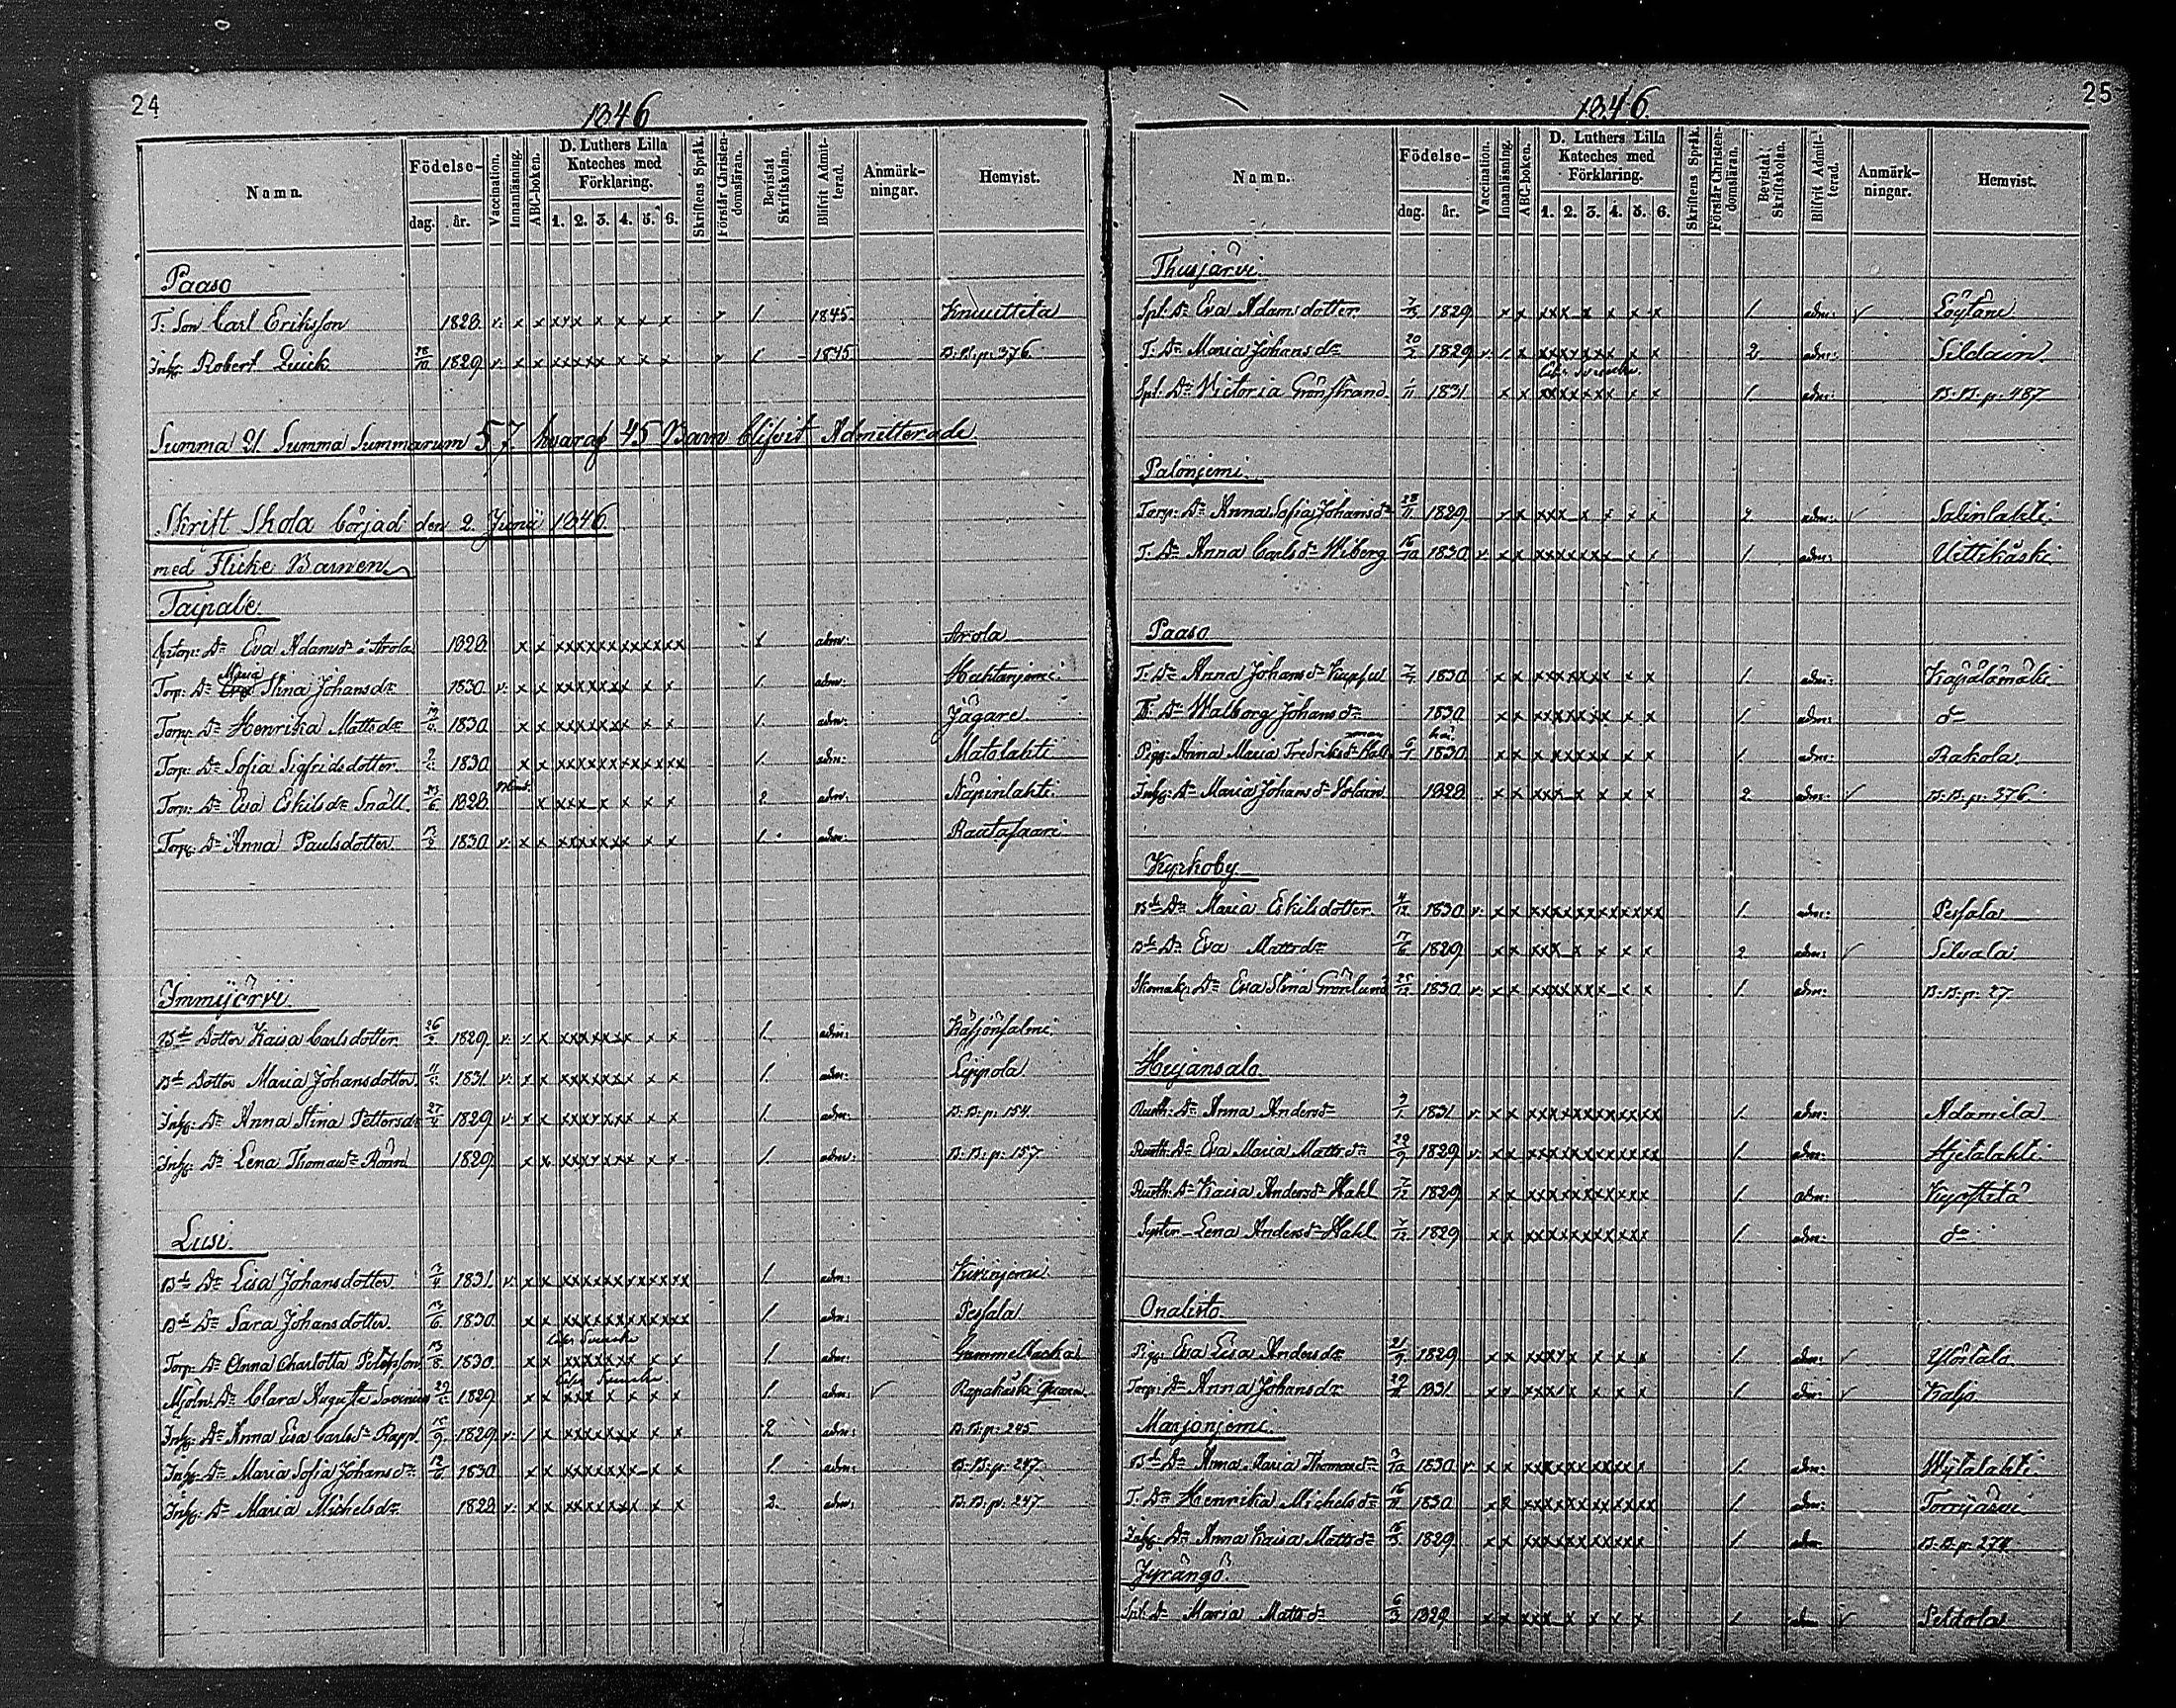 24
1846
Namn. Födelse- dag. år. Vaccination. Innanläsning. ABC-boken. D. Luthers Lilla Kateches med Förklaring. 1. 2. 3. 4. 5. 6. Skriftens Språk. Förstår Christendomsläran. Bevistat Skriftskolan. Blifvit Admitterad. Anmärkningar. Hemvist.
Paaso
T: Son Carl Eriksson 1828 v. x x xxx x x x x v 1 1845 Knuuttila
Inhs: Robert Quick 28/10 1829 v. x x xxxxx x x x v 1 1845 B.B.p: 376
Summa 21. Summa Summarum 57 hvaraf 45 Barn blifvit Admitterade
Skrift Skola börjad den 2 Junii 1846
med Flicke Barnen
Taipale
Eva Adamsdr 1828 x x xxxxxxxxxxx 1 adm:
Torp: Dr Maria Stina Johansdr 1830 v. x x xxxxxxx x x 1. adm: Hahtarjemi
Torp: Dr Henrika Mattsdr 1830 x x xxxxxxx x x 1. adm: Jägare
Torp: Dr Sofia Sigfridsdotter 1830 x x xxxxxxxxxxx 1. adm: Matolahti
Torp: Dr Eva Eskilsdr Snäll 1828 x xxx x x x x 2 adm: Näpinlahti
Torp: Dr Anna Paulsdotter 13/2 1830 v. x x xxxxxxx x x 1. adm: Rautasaari
Immijärvi
Bd Dotter Kaisa Carlsdotter 26/2 1829 v. x x xxxxxxx x x 1. adm:
Bd Dotter Maria Johansdotter 1831 v. x x xxxxxxx x x 1. adm: Lippola
Inhs: Dr Anna Stina Pettersdr 27/4 1829 v. x x xxxxxxx x x 1. adm: B.B.p: 154
Inhs: Dr Lena Thomasdr 1829 x x xxxxxxx x x 1. adm: B.B.p: 157
Lusi
Bd Dr Lisa Johansdotter 3/4 1831 v. x x xxxxxxxxxxx 1. adm:
Bd Dr Sara Johansdotter 13/6 1830 x x xxxxxxxxxxx 1. adm: Pessala
Torp: Dr Anna Charlotta 13/8 1830 x x xxxxxxx x x 1. adm: Gammelbacka
Mjöln: Dr Clara Augusta 1829 x x xxx x x x x 1. adm: v
Inhs: Dr Anna Lisa Carlsdr Rapp 15/9 1829 v. x xxxxxxx x x 2 adm: B.B.p: 245
Inhs: Dr Maria Sofia Johansdr 12/6 1830 x x xxxxxxx x x 1. adm: B.B.p: 247
Inhs: Dr Maria Michelsdr 1828 v. x x xxxxxxx x x 2. adm: B.B.p: 247
25
1846.
Namn. Födelse- dag. år. Vaccination. Innanläsning. ABC-boken. D. Luthers Lilla Kateches med Förklaring. 1. 2. 3. 4. 5. 6. Skriftens Språk. Förstår Christendomsläran. Bevistat Skriftskolan. Blifvit Admitterad. Anmärkningar. Hemvist.
Thusjärvi
Spl: Dr Eva Adamsdotter 7/3 1829 x x xxx x x x x 1. adm: v Löytäne
T: Dr Maria Johansdr 20/2 1829 v. x xxxxxxx x x 2. adm: Seldain
Spl: Dr Victoria Grönstrand 1831 x x xxxxxxx x x 1. adm: B.B.p: 487
Palonjemi
Torp: Dr Anna Sofia Johansdr 28/11 1829 x x xxx x x x x 2. adm: v Salinlahti
T: Dr Anna Carlsdr Wiberg 16/10 1830 v. x x xxxxxxx x x 1. adm: Uittikäski
Paaso
T: Dr Anna Johansdr 1830 x x xxxxxxx x x 1. adm: Käpälämäki
T: Dr Walborg Johansdr 1830 x x xxxxxxx x x 1. adm: do
Pig: Anna Maria Fredriksdr 1830 x x xxxxxxx x x 1. adm: Rakola
Inhs: Dr Maria Johansdr 1828 x x xxx x x x x 2. adm: v B.B.p: 376
Kyrkoby
Bd Dr Maria Eskilsdotter 4/12 1830 v. x x xxxxxxxxxxx 1. adm: Pessala
Bd Dr Eva Mattsdr 17/6 1829 x x xxx x x x x 2 adm: v Silvala
Skomak: Dr Eva Stina Grönlund 25/12 1830 v. x x xxxxxxx x x 1. adm: B.B.p: 27
Heijansalo
Rusth: Dr Anna Andersdr 1831 v. x x xxxxxxxxxxx 1. adm: Adamila
Rusth: Dr Eva Maria Mattsdr 22/9 1829 v. x x xxxxxxxxxxx 1. adm: Hietalahti
Rusth: Dr Kaisa Andersdr Hahl 7/12 1829 x x xxxxxxxxxx 1. adm:
Syster Lena Andersdr Hahl 7/12 1829 x x xxxxxxxxxx 1. adm: do
Onalisto
Pig: Eva Lisa Andersdr 21/9 1829 x x xxxx x x x x 1. adm: v Ylörtalo
Torp: Dr Anna Johansdr 1831 x x xxx x x x x 1. adm: v Kaljo
Marjonjemi
Bd Dr Anna Maria Thomasdr 3/10 1830 v. x x xxxxxxxxxx 1. adm:
T: Dr Henrika Michelsdr 16/11 1830 x x xxxxxxxxxxx 1. adm:
Inhs: Dr Anna Kaisa Mattsdr 15/3 1829 x x xxxxxxxxxx 1. adm: B.B.p: 274
Jyrängö
Spl: Dr Maria Mattsdr 6/3 1829 x x xxx x x x x 1. adm: v Seldola